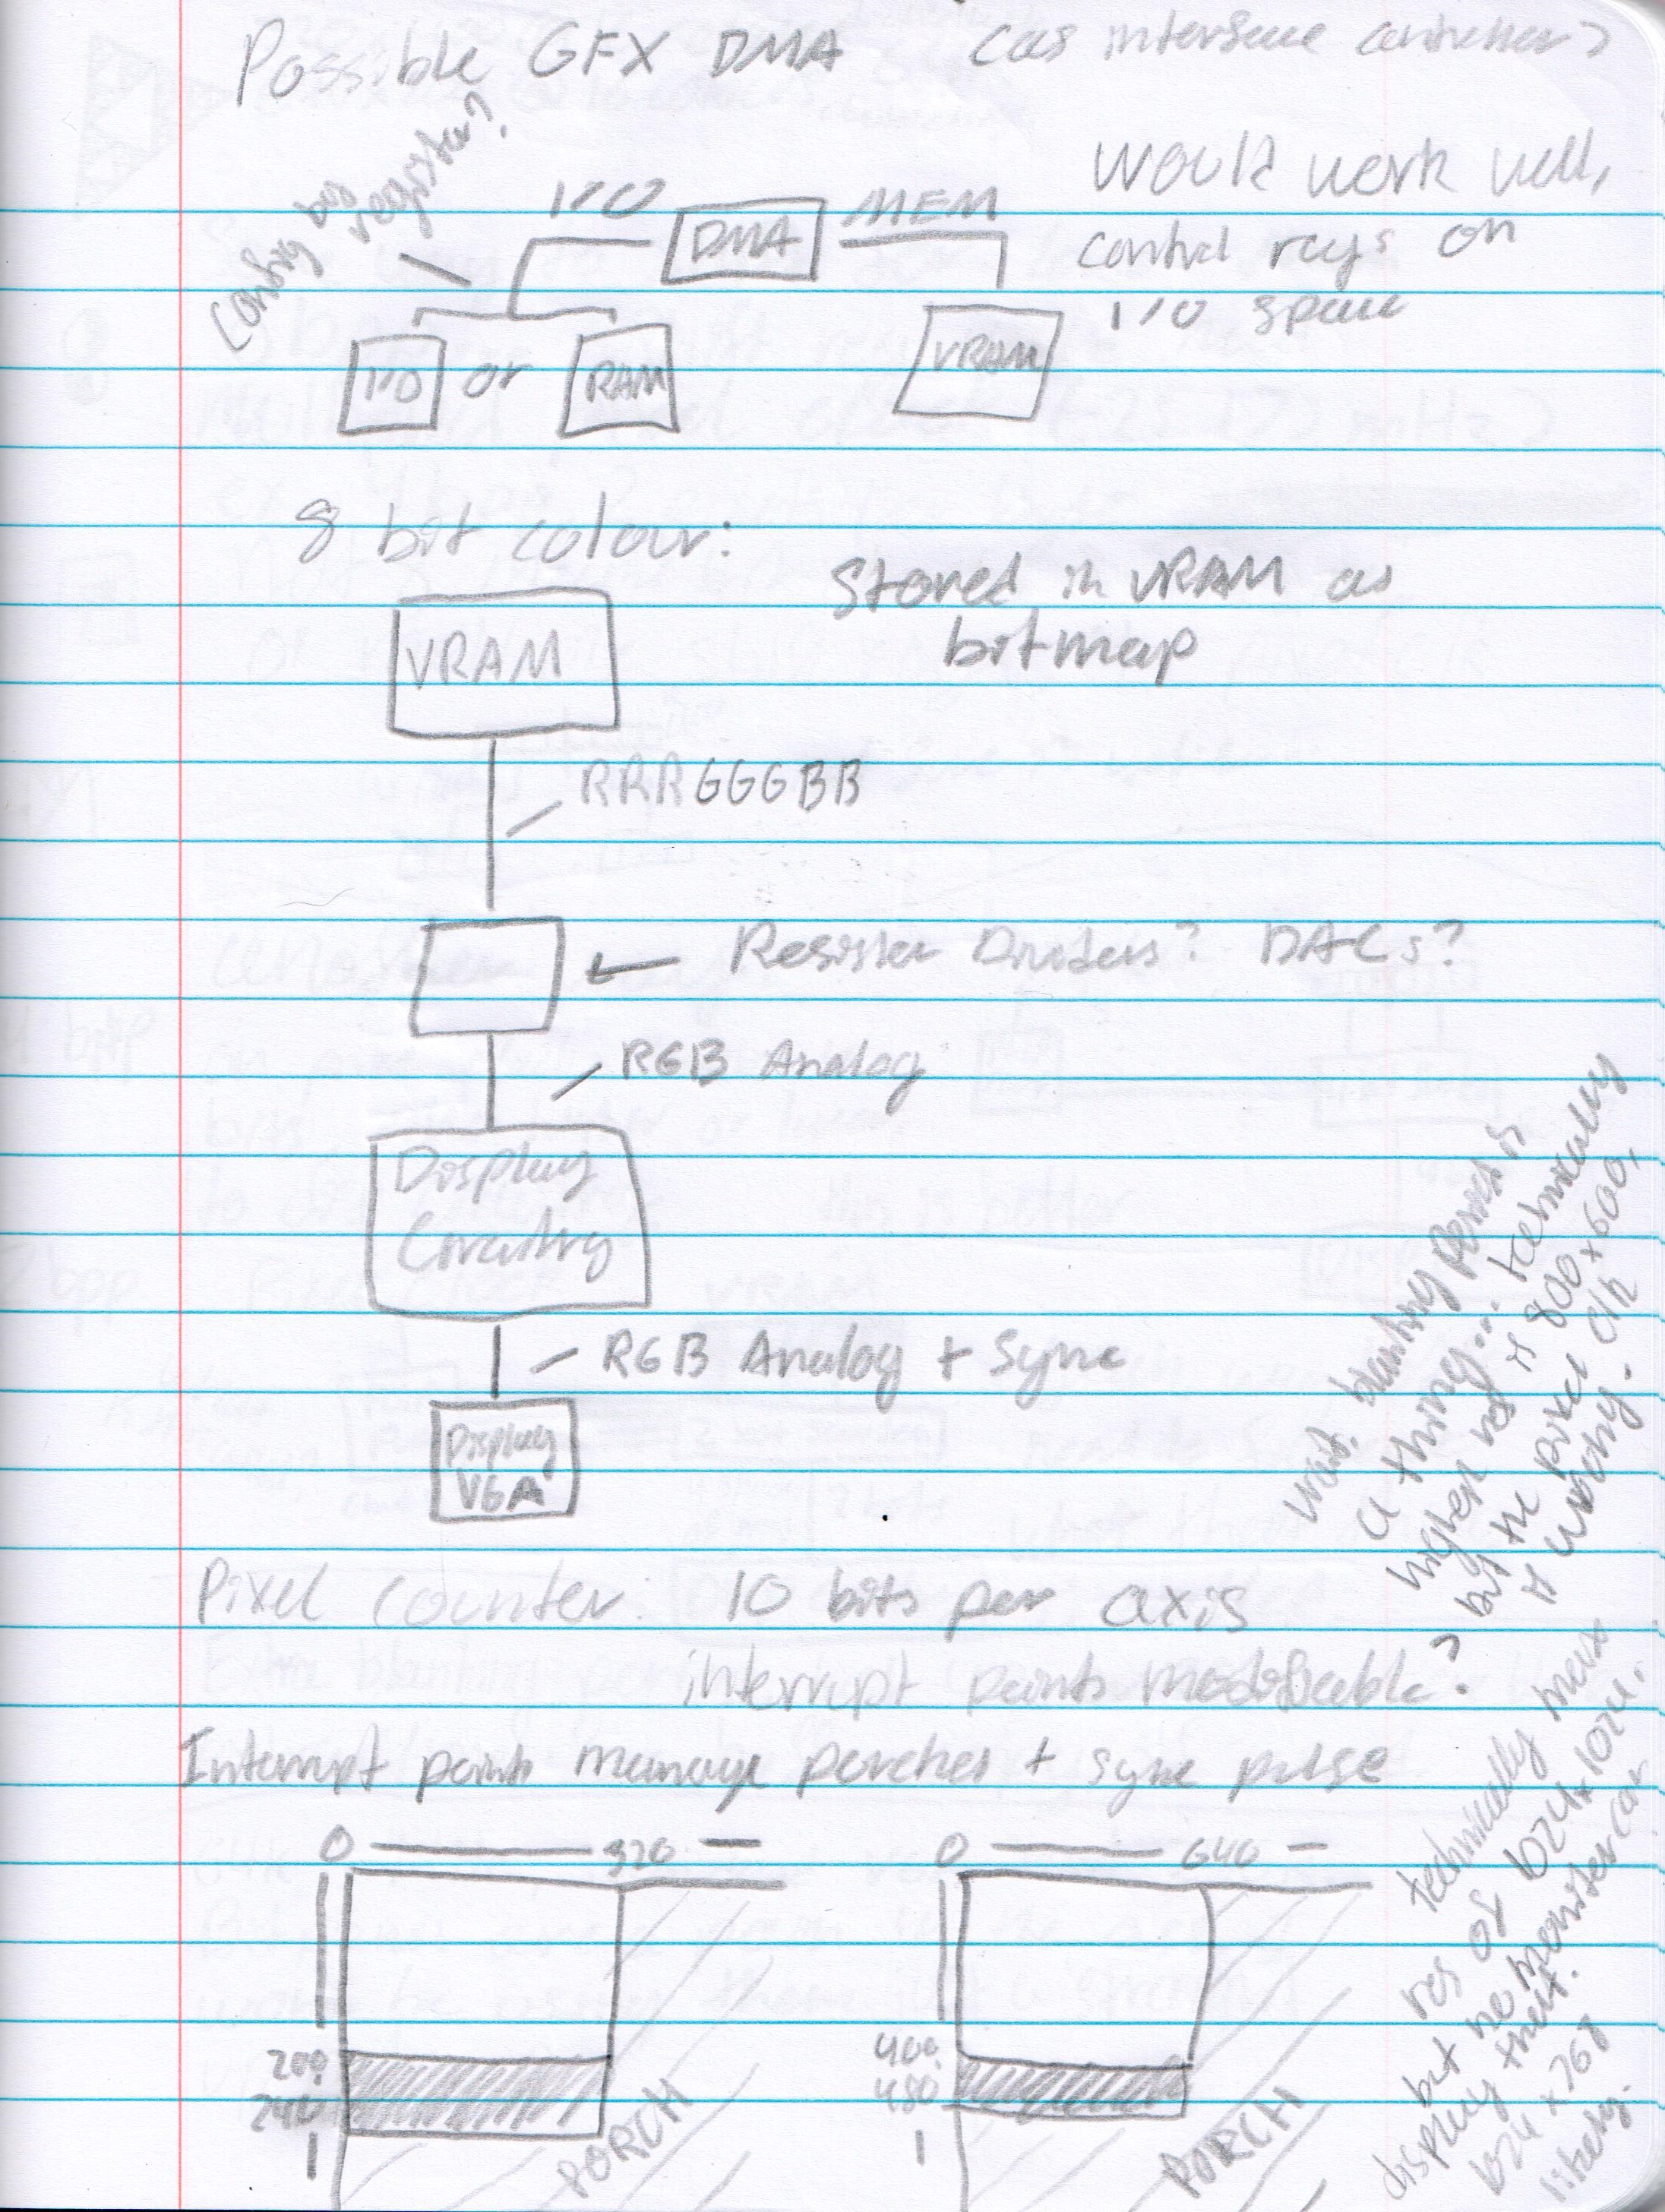 Possible GFX DMA (as interface controller?)
Config bas
register?
I/O DMA MEM
I/O or RAM
VRAM
Would work well,
control regs on
I/O space
8 bit colour:
VRAM
Stored in VRAM as
bitmap
RRRGGGBB
Resister Dividers? DACs?
RGB Analog
Display
Circuitry
RGB Analog + Sync
Display
VGA
wait, blanking period is
a thing... technically
higher res is 800x600,
but the pixel clk
is wrong.
Pixel counter: 10 bits per axis
interrupt points modifiable?
Interrupt points manage porches + sync pulse
0 320
200
240
PORCH
0 640
400
480
PORCH
technically max
res of 1024x1024,
but no monitor can
display that.
1024x768
likely.